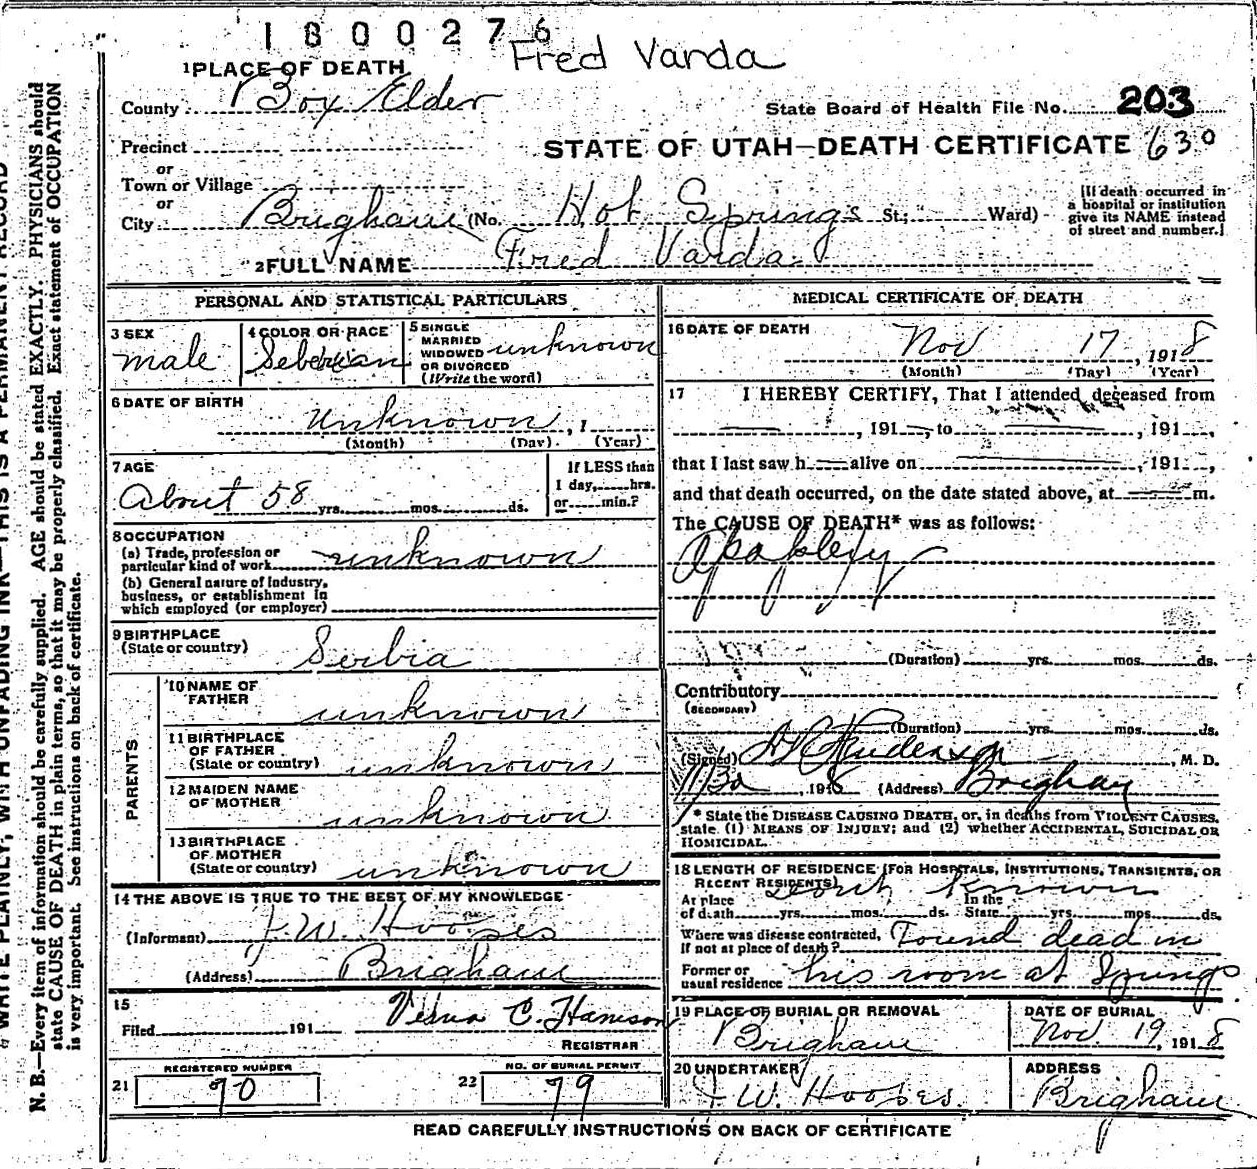 1800276
Fred Varda
1 PLACE OF DEATH
County Box Elder
State Board of Health File No. 203
Precinct
STATE OF UTAH—DEATH CERTIFICATE 630
or
Town or Village
or
City Brigham (No. Hot Springs St.; Ward)
[If death occurred in
a hospital or institution
give its NAME instead
of street and number.]
2 FULL NAME Fred Varda
PERSONAL AND STATISTICAL PARTICULARS
3 SEX
male
4 COLOR OR RACE
5 SINGLE
MARRIED
WIDOWED
OR DIVORCED
(Write the word)
unknown
6 DATE OF BIRTH
unknown , 1
(Month) (Day) (Year)
7 AGE
About 58 yrs. mos. ds.
If LESS than
1 day, hrs.
or min.?
8 OCCUPATION
(a) Trade, profession or
particular kind of work unknown
(b) General nature of Industry,
business, or establishment in
which employed (or employer)
9 BIRTHPLACE
(State or country) Serbia
PARENTS
10 NAME OF
FATHER unknown
11 BIRTHPLACE
OF FATHER
(State or country) unknown
12 MAIDEN NAME
OF MOTHER unknown
13 BIRTHPLACE
OF MOTHER
(State or country) unknown
14 THE ABOVE IS TRUE TO THE BEST OF MY KNOWLEDGE
(Informant) J. W. Hooses
(Address) Brigham
15
Filed 191
REGISTRAR
REGISTERED NUMBER
21 90
NO. OF BURIAL PERMIT
22 79
MEDICAL CERTIFICATE OF DEATH
16 DATE OF DEATH
Nov 17, 1918
(Month) (Day) (Year)
17 I HEREBY CERTIFY, That I attended deceased from
— , 191—, to — , 191 ,
that I last saw h — alive on — , 191 ,
and that death occurred, on the date stated above, at — m.
The CAUSE OF DEATH* was as follows:
(Duration) yrs. mos. ds.
Contributory
(SECONDARY)
(Duration) yrs. mos. ds.
(Signed) , M. D.
, 1918 (Address) Brigham
* State the DISEASE CAUSING DEATH, or, in deaths from VIOLENT CAUSES,
state (1) MEANS OF INJURY; and (2) whether ACCIDENTAL, SUICIDAL OR
HOMICIDAL.
18 LENGTH OF RESIDENCE (FOR HOSPITALS, INSTITUTIONS, TRANSIENTS, OR
RECENT RESIDENTS) known
At place In the
of death yrs. mos. ds. State yrs. mos. ds.
Where was disease contracted,
If not at place of death? Found dead in
Former or
usual residence his room at Springs
19 PLACE OF BURIAL OR REMOVAL
Brigham
DATE OF BURIAL
Nov. 19, 1918
20 UNDERTAKER
J. W. Hooses.
ADDRESS
Brigham
READ CAREFULLY INSTRUCTIONS ON BACK OF CERTIFICATE
N. B.—Every item of information should be carefully supplied. AGE should be stated EXACTLY. PHYSICIANS should
state CAUSE OF DEATH in plain terms, so that it may be properly classified. Exact statement of OCCUPATION
is very important. See instructions on back of certificate.
WRITE PLAINLY, WITH UNFADING INK—THIS IS A PERMANENT RECORD